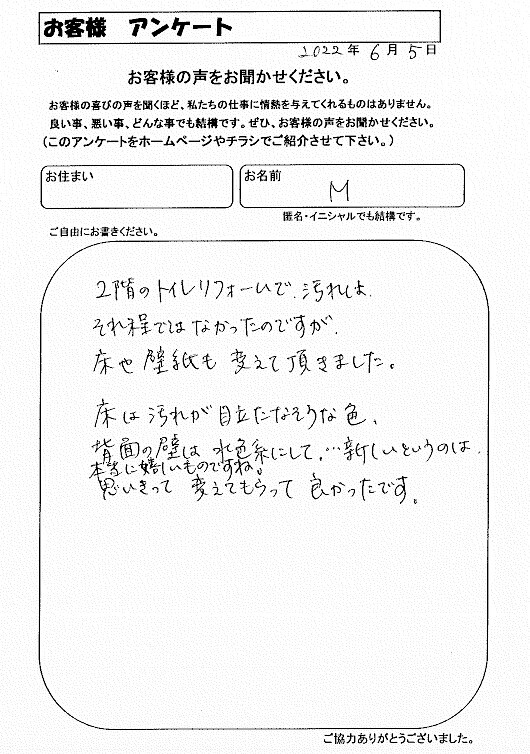 お客様 アンケート
2022年6月5日
お客様の声をお聞かせください。
お客様の喜びの声を聞くほど、私たちの仕事に情熱を与えてくれるものはありません。
良い事、悪い事、どんな事でも結構です。ぜひ、お客様の声をお聞かせください。
(このアンケートをホームページやチラシでご紹介させて下さい。)
お住まい
お名前
M
匿名・イニシャルでも結構です。
ご自由にお書きください。
2階のトイレリフォームで、汚れは、
それ程ではなかったのですが、
床や壁紙も変えて頂きました。
床は汚れが目立たなそうな色、
背面の壁は水色系にして、…新しいというのは、
本当に嬉しいものですね。
思いきって変えてもらって良かったです。
ご協力ありがとうございました。